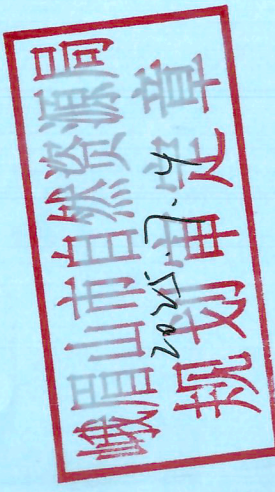 峨眉山市自然资源局
规划审定章
2025.7.4